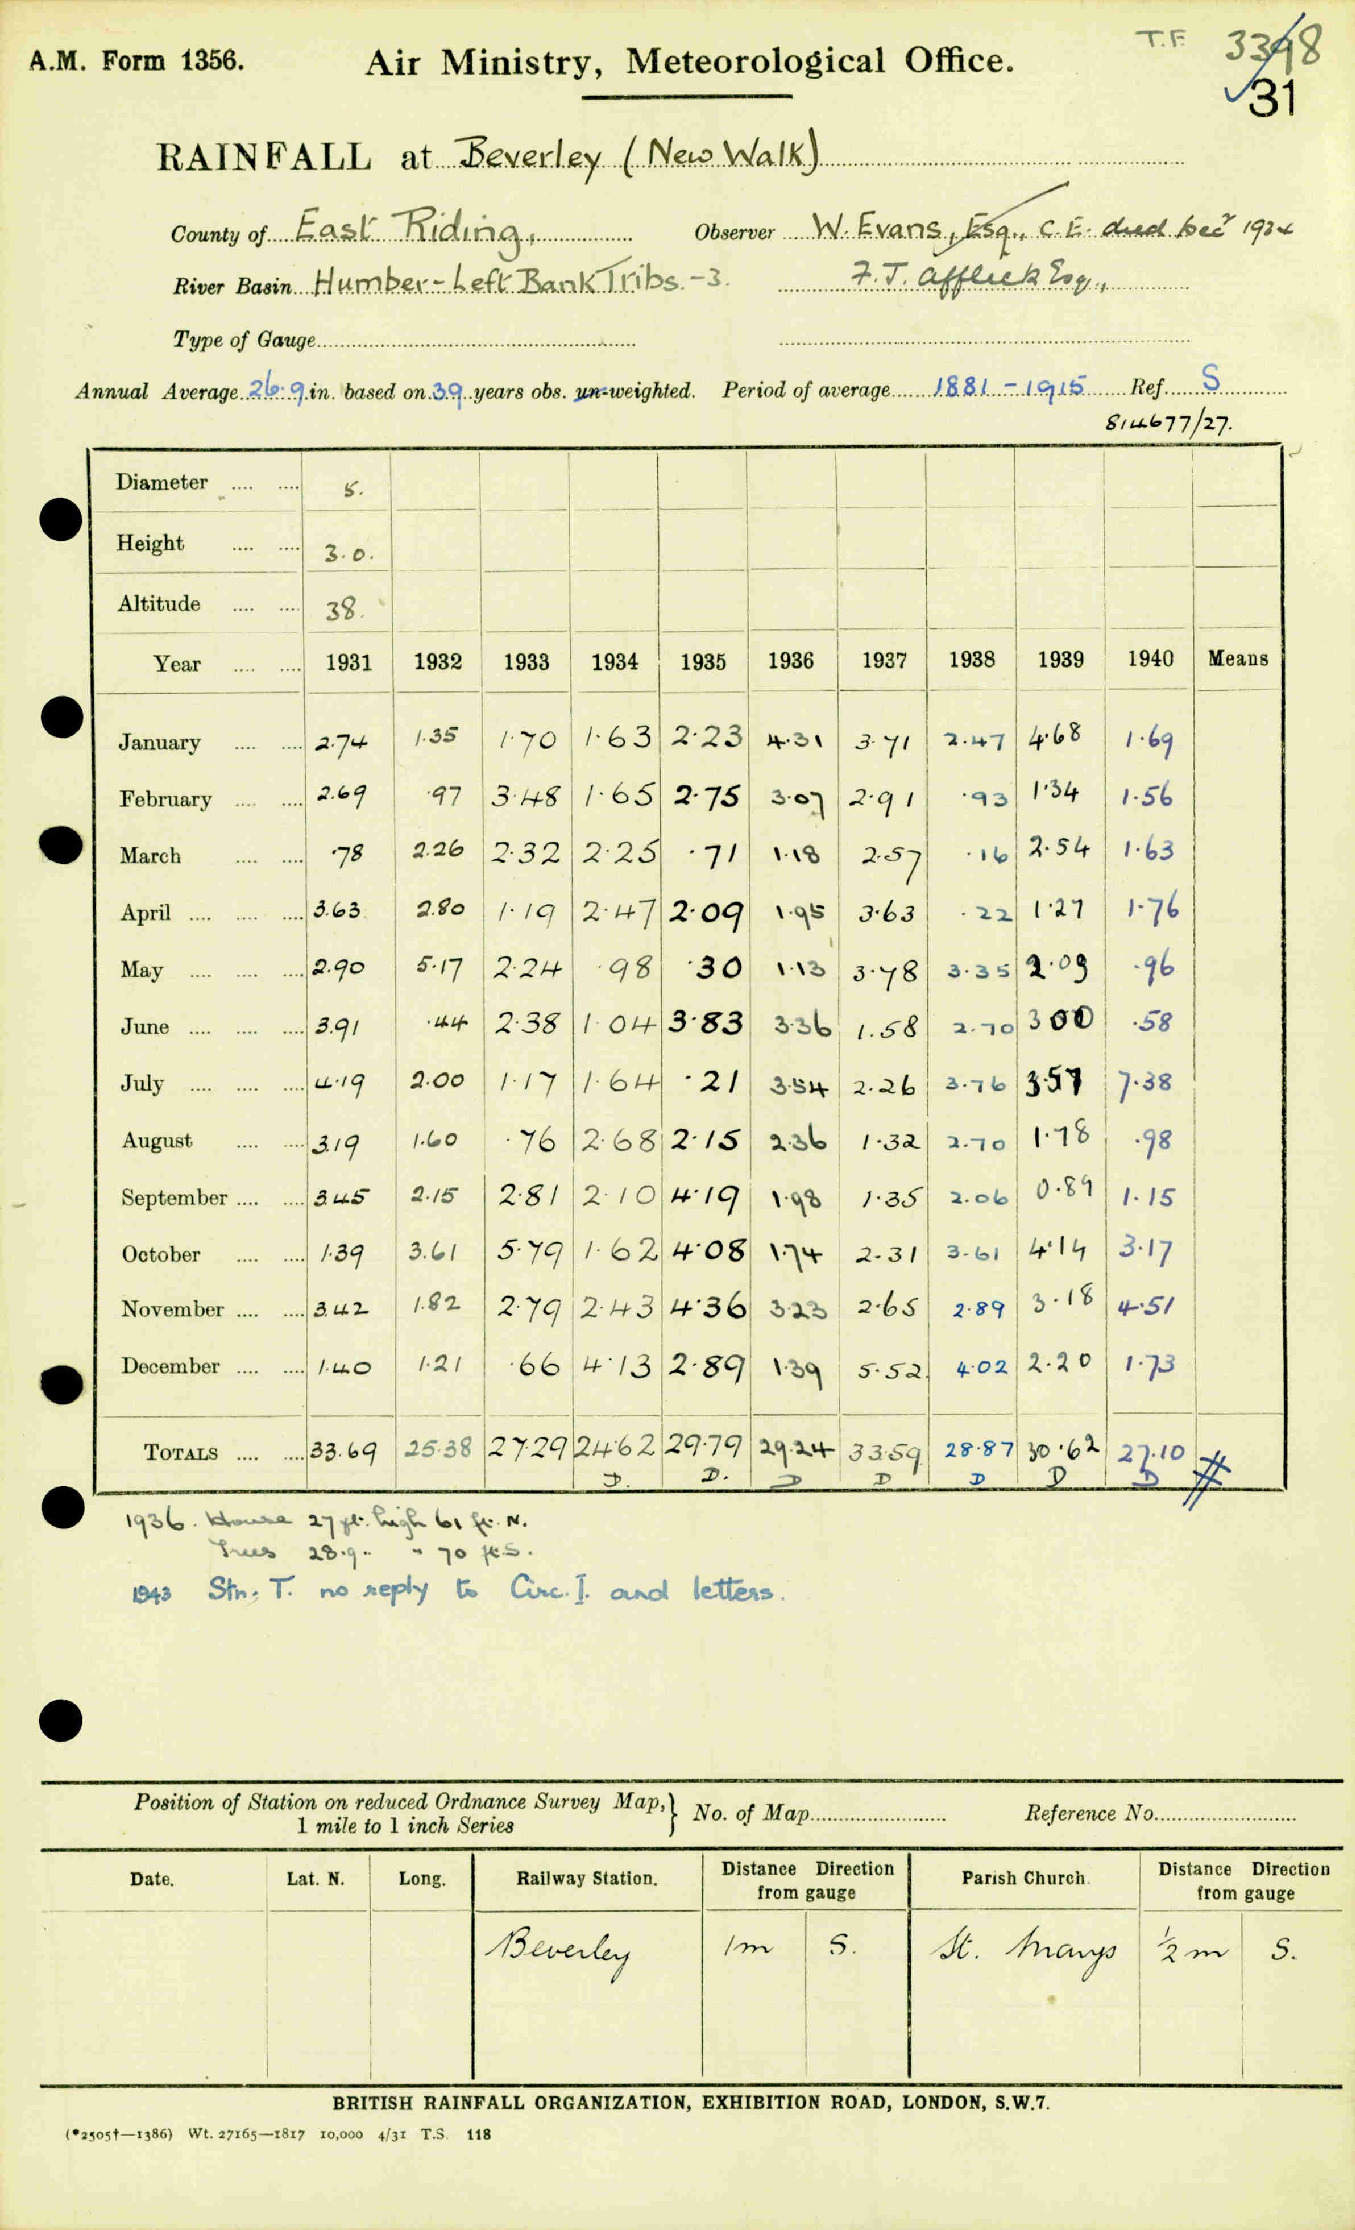 T.F. 3398
A.M. Form 1356. Air Ministry, Meteorological Office.
31
RAINFALL at Beverley (New Walk)
County of East Riding, Observer W. Evans, Esq., C.E. died Decr 1934
River Basin Humber-Left Bank Tribs.-3. F. J. Affleck Esq.,
Type of Gauge
Annual Average 26.9 in. based on 39 years obs. un-weighted. Period of average 1881-1915 Ref. S
814677/27.
Diameter .... .... 5.
Height .... .... 3.0.
Altitude .... .... 38.
Year .... .... 1931 1932 1933 1934 1935 1936 1937 1938 1939 1940 Means
January .... .... 2.74 1.35 1.70 1.63 2.23 4.31 3.71 2.47 4.68 1.69
February .... .... 2.69 .97 3.48 1.65 2.75 3.07 2.91 .93 1.34 1.56
March .... .... .78 2.26 2.32 2.25 .71 1.18 2.57 .16 2.54 1.63
April .... .... .... 3.63 2.80 1.19 2.47 2.09 1.95 3.63 .22 1.27 1.76
May .... .... .... 2.90 5.17 2.24 .98 .30 1.13 3.78 3.35 2.03 .96
June .... .... .... 3.91 .44 2.38 1.04 3.83 3.36 1.58 2.70 3.00 .58
July .... .... .... 4.19 2.00 1.17 1.64 .21 3.54 2.26 3.76 3.57 7.38
August .... .... 3.19 1.60 .76 2.68 2.15 2.36 1.32 2.70 1.78 .98
September .... .... 3.45 2.15 2.81 2.10 4.19 1.98 1.35 2.06 0.89 1.15
October .... .... 1.39 3.61 5.79 1.62 4.08 1.74 2.31 3.61 4.14 3.17
November .... .... 3.42 1.82 2.79 2.43 4.36 3.23 2.65 2.89 3.18 4.51
December .... .... 1.40 1.21 .66 4.13 2.89 1.39 5.52 4.02 2.20 1.73
TOTALS .... .... 33.69 25.38 27.29 24.62 29.79 29.24 33.59 28.87 30.62 27.10 #
D. D. D D D D D
1936. House 27 ft. high 61 ft. N.
Trees 28.9 " " 70 ft S.
1943 Stn. T. no reply to Circ. I. and letters.
Position of Station on reduced Ordnance Survey Map, 1 mile to 1 inch Series } No. of Map Reference No.
Date. Lat. N. Long. Railway Station. Distance Direction from gauge Parish Church. Distance Direction from gauge
Beverley 1m S. St. Marys ½ m S.
BRITISH RAINFALL ORGANIZATION, EXHIBITION ROAD, LONDON, S.W.7.
(*2505†—1386) Wt. 27165—1817 10,000 4/31 T.S. 118